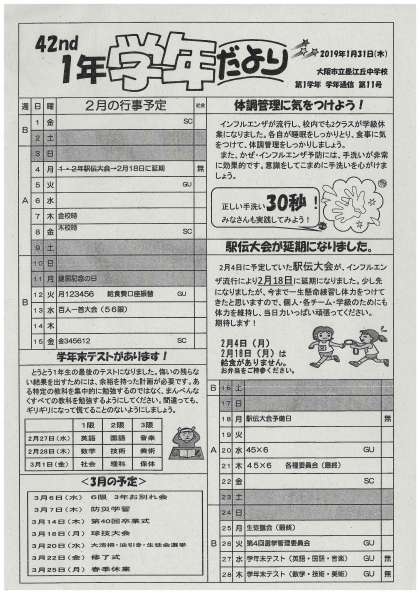 42nd
1年 学年だより
2019年1月31日(木)
大阪市立墨江丘中学校
第1学年 学年通信 第11号
週 日 曜 2月の行事予定 給食
B 1 金 SC
2 土
3 日
4 月 1・2年駅伝大会→2月18日に延期 無
5 火 GU
A 6 水
7 木 金校時
8 金 木校時 SC
9 土
10 日
11 月 建国記念の日
B 12 火 月123456 給食費口座振替 GU
13 水 百人一首大会(56限)
14 木
15 金 金345612 SC
体調管理に気をつけよう!
インフルエンザが流行し、校内でも2クラスが学級休
業になりました。各自が睡眠をしっかりとり、食事に気
をつけて、体調管理をしっかりしましょう。
また、かぜ・インフルエンザ予防には、手洗いが非常
に効果的です。意識をしてこまめに手洗いを心がけま
しょう。
正しい手洗い 30秒!
みなさんも実践してみよう!
駅伝大会が延期になりました。
2月4日に予定していた駅伝大会が、インフルエン
ザ流行により2月18日に延期になりました。少し先
になりましたが、今まで一生懸命練習し体力をつけて
きたと思いますので、個人・各チーム・学級のためにも
体力を維持し、当日力いっぱい頑張ってください。
期待します!
2月4日(月)
2月18日(月)は
給食がありません。
お弁当をご準備ください。
学年末テストがあります!
とうとう1年生の最後のテストになりました。悔いの残らな
い結果を出すためには、余裕を持った計画が必要です。あ
る特定の教科を集中的に勉強するのではなく、まんべんな
くすべての教科を勉強するようにしてください。間違っても、
ギリギリになって慌てることのないようにしましょう。
1限 2限 3限
2月27日(水) 英語 国語 音楽
2月28日(木) 数学 技術 美術
3月1日(金) 社会 理科 保体
<3月の予定>
3月6日(水) 6限 3年お別れ会
3月7日(木) 防災学習
3月14日(木) 第40回卒業式
3月18日(月) 球技大会
3月20日(水) 大清掃・油引き・生徒会選挙
3月22日(金) 修了式
3月25日(月) 春季休業
B 16 土
17 日
18 月 駅伝大会予備日 無
19 火
A 20 水 45×6 GU
21 木 45×6 各種委員会(最終)
22 金 SC
23 土
24 日
25 月 生徒議会(最終)
B 26 火 第4回選挙管理委員会 GU
27 水 学年末テスト(英語・国語・音楽) GU 無
28 木 学年末テスト(数学・技術・美術) GU 無